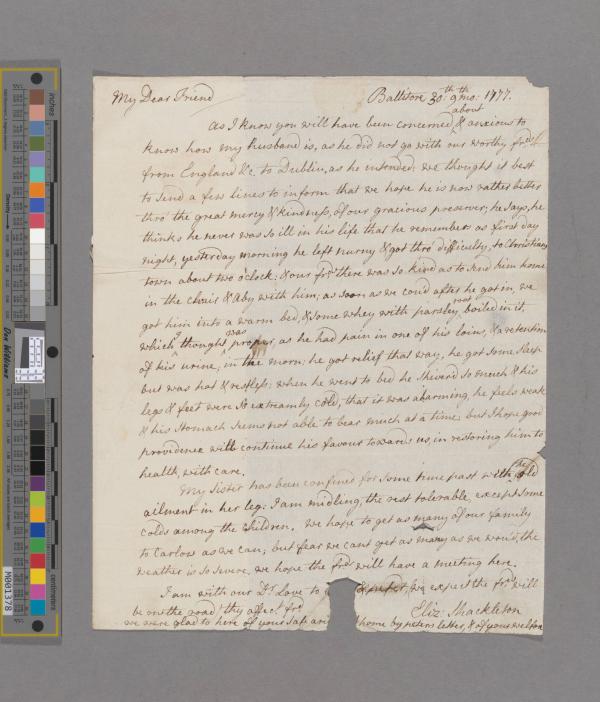 My Dear Friend Ballitore 30th. 9th mo: 1777.
about
As I know you will have been concerned & anxious to
know how my husband is, as he did not go with our worthy frds
from England &c. to Dublin, as he intended; we thought it best
to send a few lines to inform that we hope he is now rather better
thro' the great mercy & kindness, of our gracious preserver; he says, he
thinks he never was so ill in his life that he remembers as first day
night, yesterday morning he left nurny & got thro' difficulty, to Christians
town about two o'clock: & our frds there was so kind as to send him home
in the chair & Aby with him; as soon as we cou'd after he got in, we
got him into a warm bed, & some whey with parsley root boiled in it,
which was thought proper, as he had pain in one of his loins, & a retention
of his urine, in the morn: he got relief that way, he got some sleep
but was hot & restless: when he went to bed he shiver'd so much & his
legs & feet were so extreamly cold, that it was alarming, he feels weak
& his stomach seems not able to bear much at a time but I hope good
providence will continue his favour towards us, in restoring him to
health, with care.
My Sister has been confined for some time past with the old
ailment in her leg: I am midling, the rest tolerable, except some
colds among the Children. we hope to get as many of our family
to Carlow as we can, but fear we cant get as many as we wou'd, the
weather is so severe, we hope the frds will have a meeting here.
I am with our Dr. Love to we expect the frds will
be on the road thy affec: frd Eliz: Shackleton
we were glad to here of your safe home by peters letter, & of your welfare
inches
centimeters
Don Williams
M001378